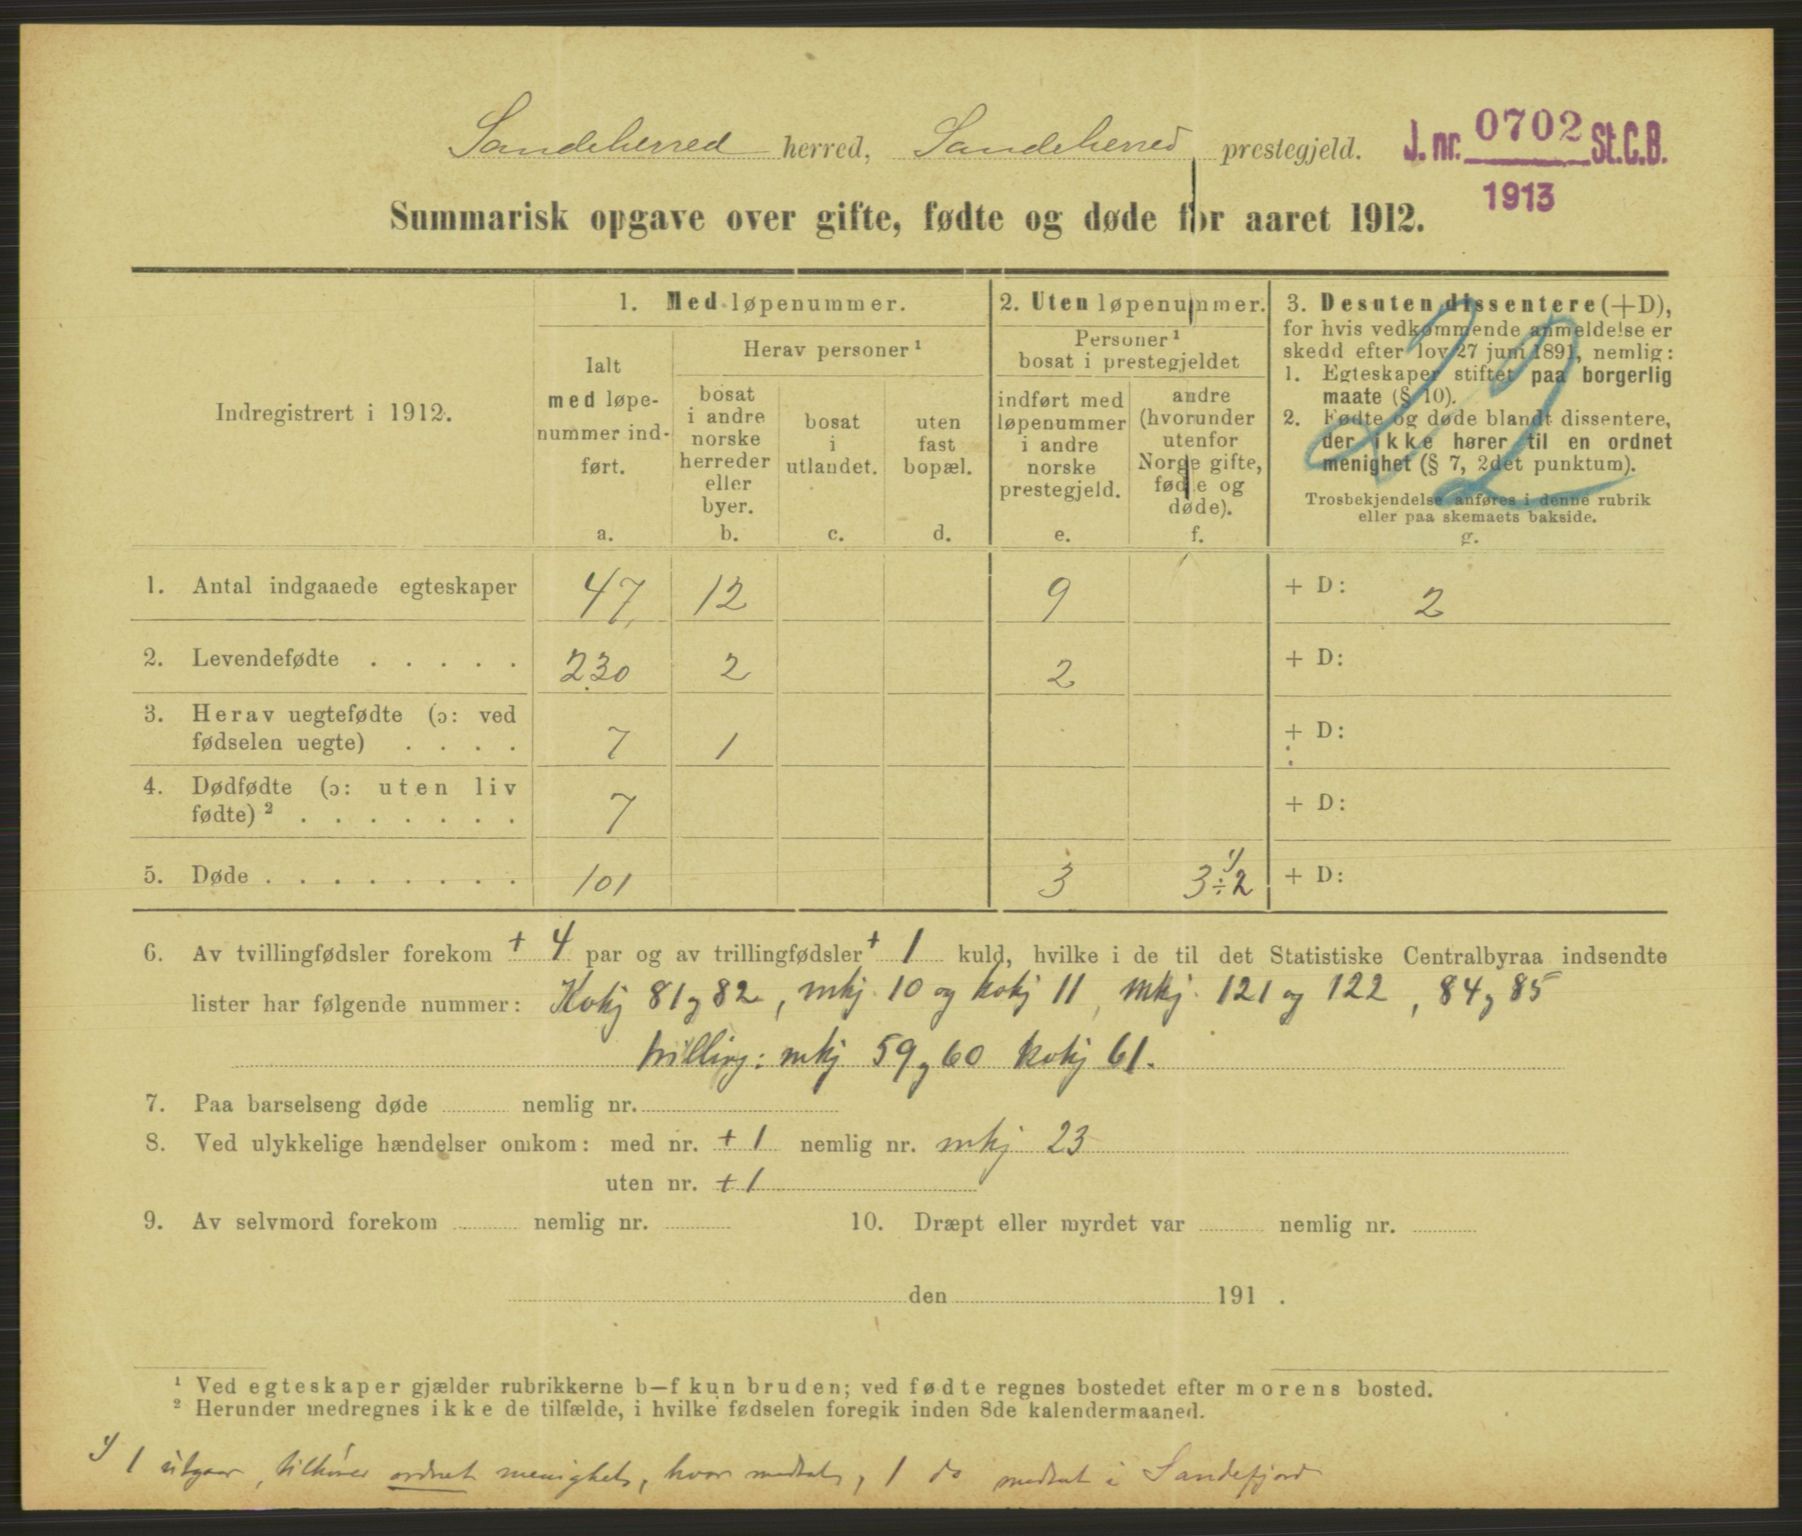 Sandeherred herred, Sandeherred prestegjeld.
J. nr. 0702 St.C.B.
1913
Summarisk opgave over gifte, fødte og døde for aaret 1912.
Indregistrert i 1912.
1. Med løpenummer.
Ialt
med løpe-
nummer ind-
ført.
a.
Herav personer¹
bosat
i andre
norske
herreder
eller
byer.
b.
bosat
i
utlandet.
c.
uten
fast
bopæl.
d.
2. Uten løpenummer.
Personer¹
bosat i prestegjeldet
indført med
løpenummer
i andre
norske
prestegjeld.
e.
andre
(hvorunder
utenfor
Norge gifte,
fødte og
døde).
f.
3. Desuten dissentere (+D),
for hvis vedkommende anmeldelse er
skedd efter lov 27 juni 1891, nemlig:
1. Egteskaper stiftet paa borgerlig
maate (§ 10).
2. Fødte og døde blandt dissentere,
der ikke hører til en ordnet
menighet (§ 7, 2det punktum).
Trosbekjendelse anføres i denne rubrik
eller paa skemaets bakside.
g.
22
1. Antal indgaaede egteskaper 47 12 9 + D: 2
2. Levendefødte . . . . . 230 2 2 + D:
3. Herav uegtefødte (ɔ: ved
fødselen uegte) . . . . 7 1 + D:
4. Dødfødte (ɔ: uten liv
fødte)² . . . . . . . 7 + D:
5. Døde . . . . . . . . 101 3 3 ÷ 2 ¹/ + D:
6. Av tvillingfødsler forekom + 4 par og av trillingfødsler + 1 kuld, hvilke i de til det Statistiske Centralbyraa indsendte
lister har følgende nummer: Kvkj 81 og 82, mkj 10 og kvkj 11, mkj. 121 og 122, 84 og 85
trilling: mkj 59 og 60 kvkj 61.
7. Paa barselseng døde nemlig nr.
8. Ved ulykkelige hændelser omkom: med nr. + 1 nemlig nr. mkj 23
uten nr. + 1
9. Av selvmord forekom nemlig nr. 10. Dræpt eller myrdet var nemlig nr.
den 191 .
¹ Ved egteskaper gjælder rubrikkerne b—f kun bruden; ved fødte regnes bostedet efter morens bosted.
² Herunder medregnes ikke de tilfælde, i hvilke fødselen foregik inden 8de kalendermaaned.
¹/ 1 utgaar, tilhører ordnet menighet, hvor medtat, 1 do medtat i Sandefjord